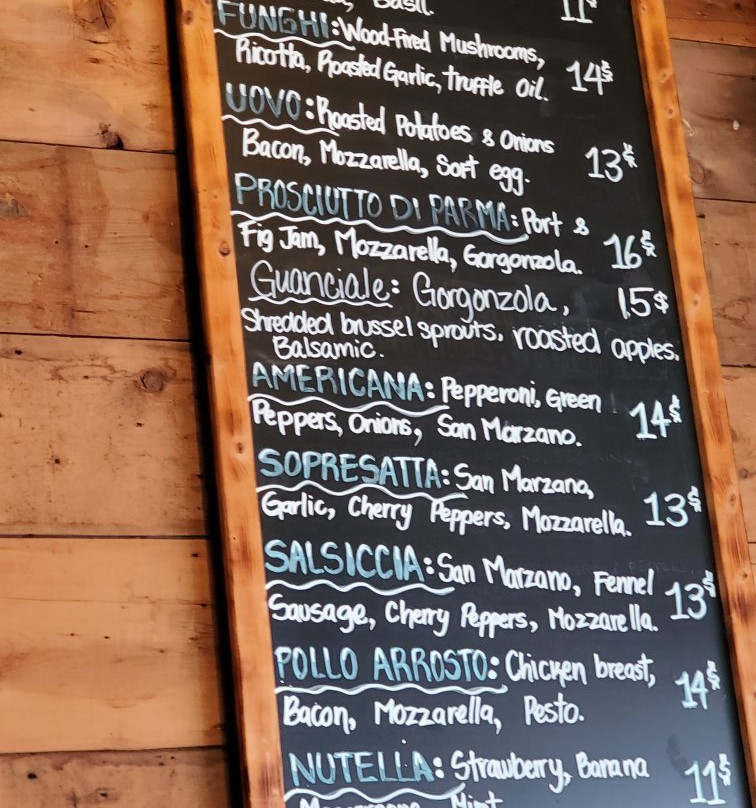 Basil. 11$
FUNGHI: Wood-Fired Mushrooms,
Ricotta, Roasted Garlic, truffle Oil. 14$
UOVO: Roasted Potatoes & Onions
Bacon, Mozzarella, Soft egg. 13$
PROSCIUTTO DI PARMA: Port &
Fig Jam, Mozzarella, Gorgonzola. 16$
Guanciale: Gorgonzola, 15$
Shredded brussel sprouts, roasted apples,
Balsamic.
AMERICANA: Pepperoni, Green
Peppers, Onions, San Marzano. 14$
SOPRESATTA: San Marzano,
Garlic, Cherry Peppers, Mozzarella. 13$
SALSICCIA: San Marzano, Fennel
Sausage, Cherry Peppers, Mozzarella. 13$
POLLO ARROSTO: Chicken breast,
Bacon, Mozzarella, Pesto. 14$
NUTELLA: Strawberry, Banana 11$
Mint